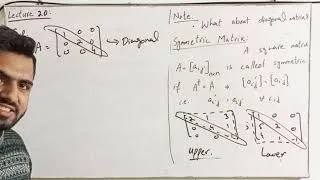 Lecture 20:
if
A = [1 0 0
0 2 0
0 0 4] → Diagonal
Note:
What about diagonal matrix?
Symmetric Matrix: A square matrix
A = [aij]nxn is called symmetric
if A^t = A ⇒ [aji] = [aij]
i.e. aji = aij ∀ i,j
Upper. Lower